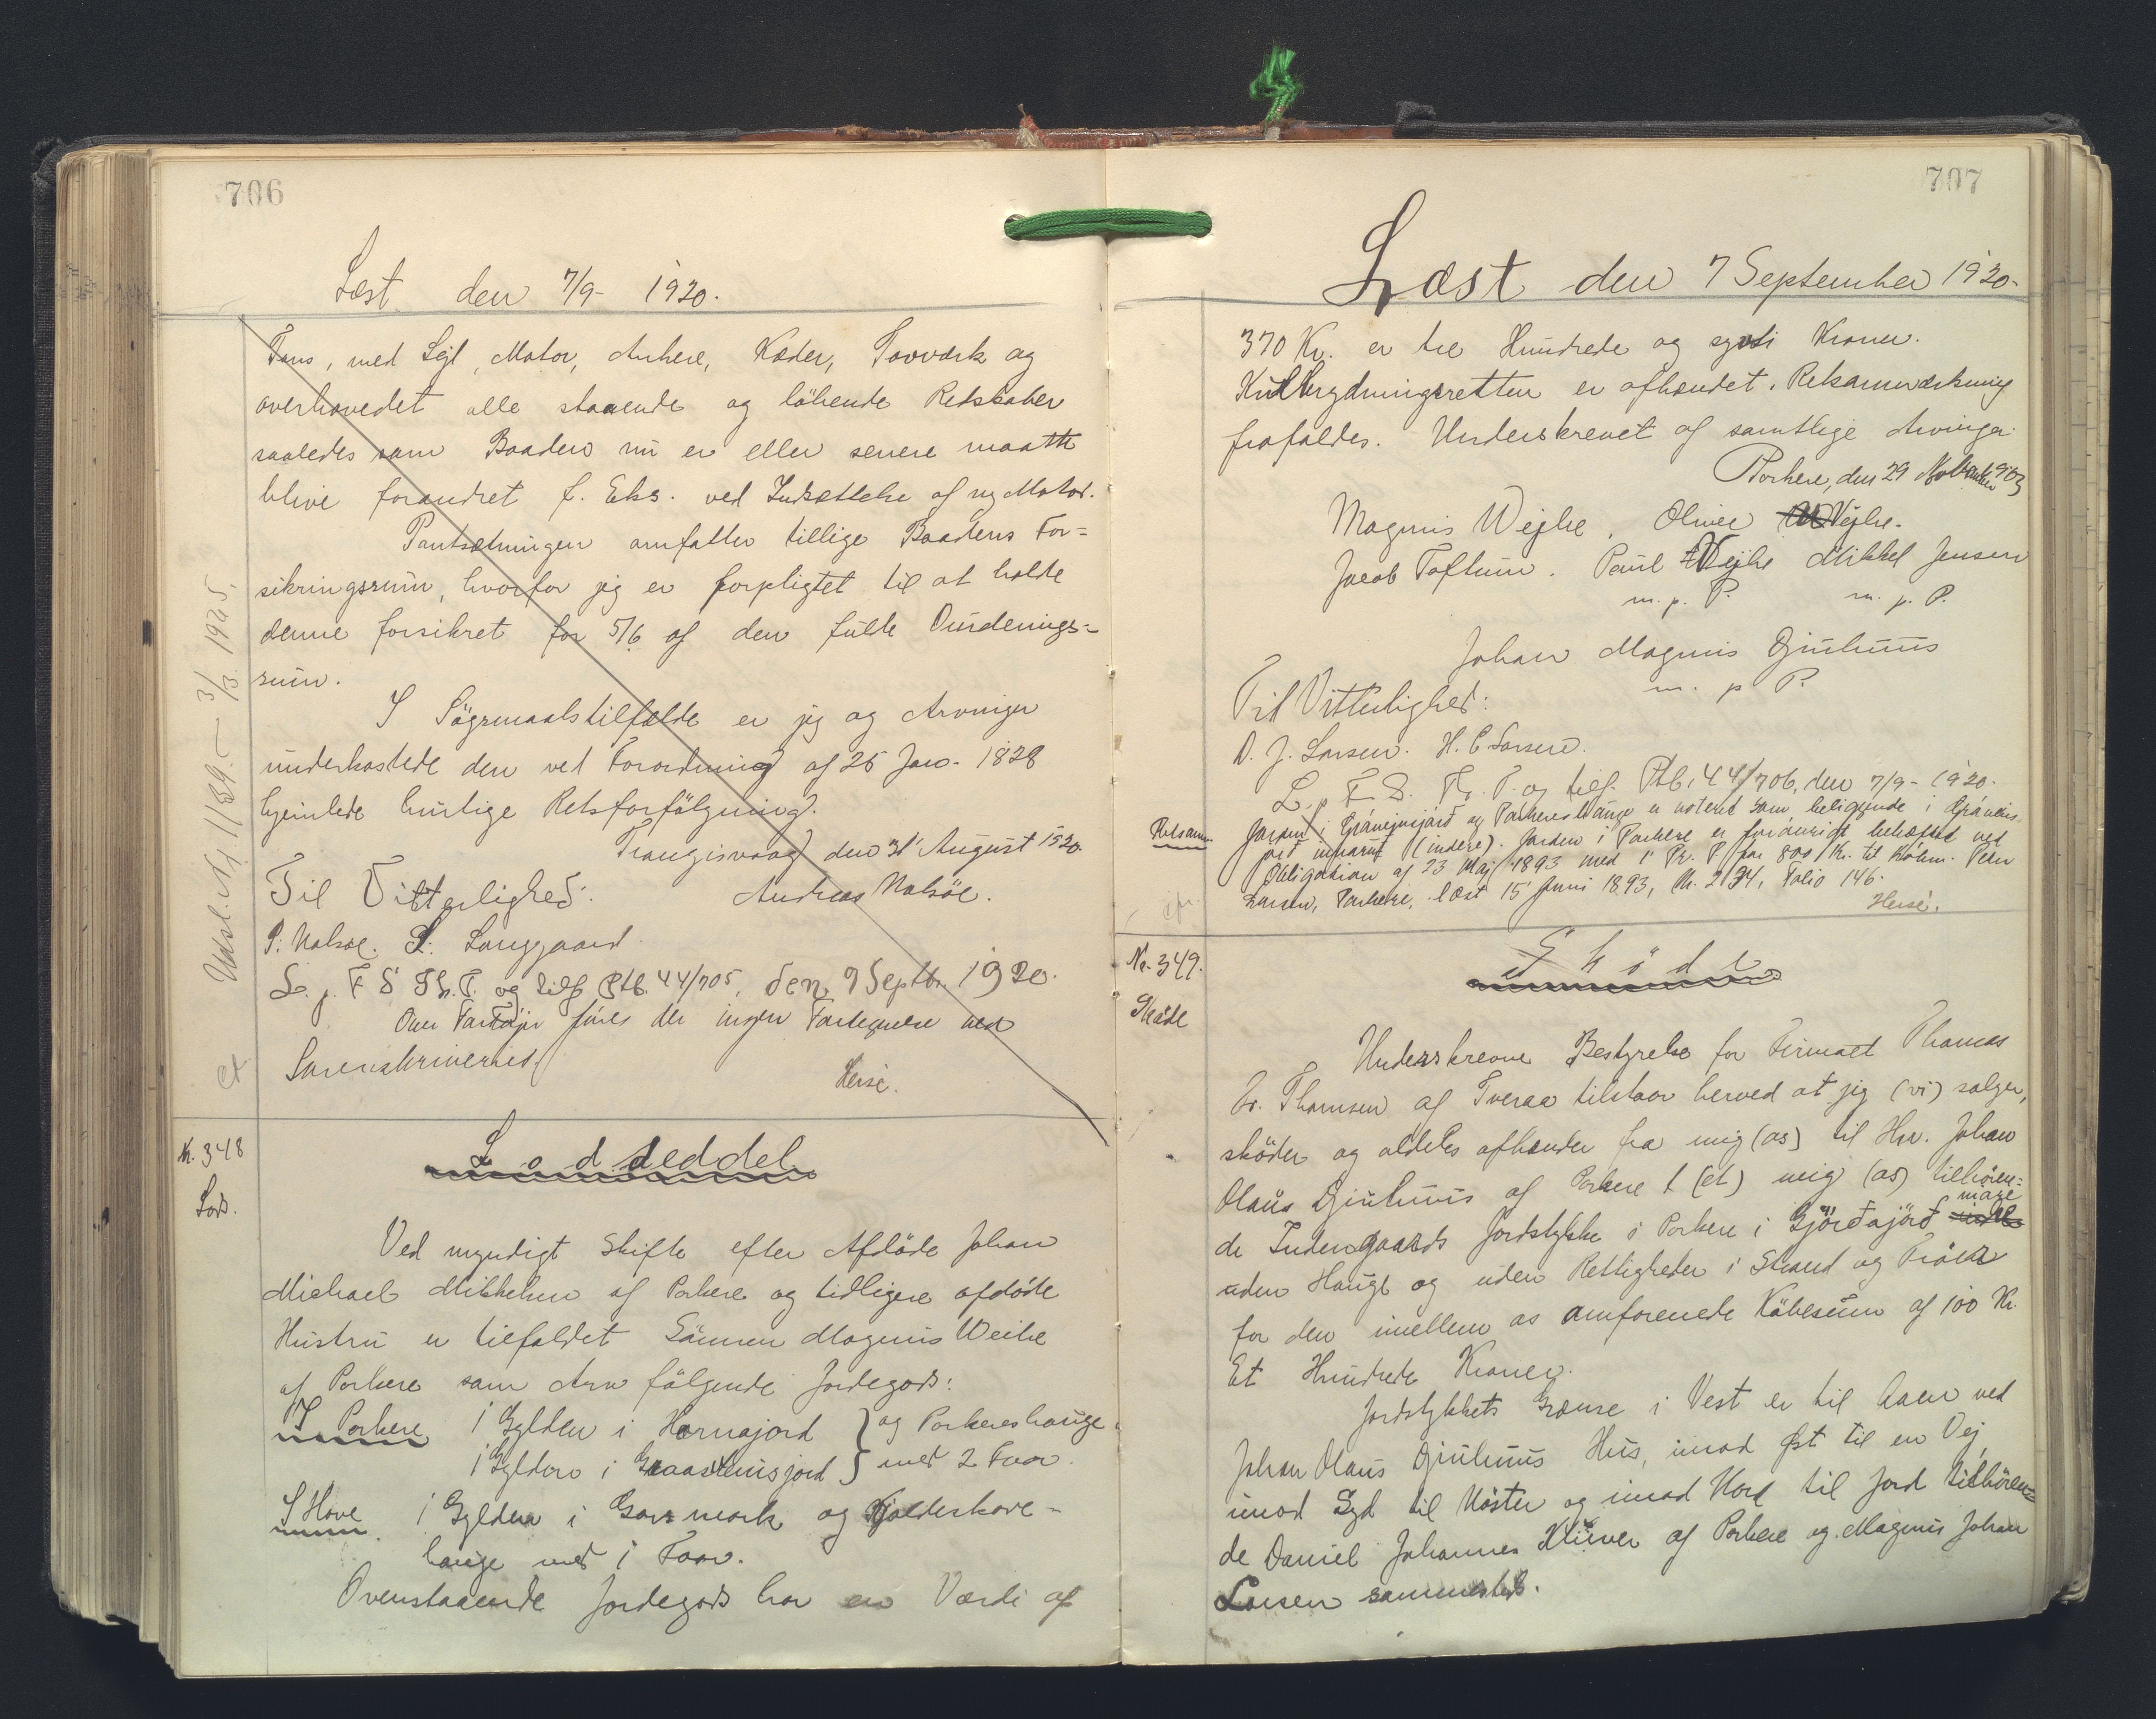 706
Læst den 7/9 - 1920.
Tons, med Sejl, Motor, Ankere, Kæder, Tovværk og
overhovedet alle staaende og løbende Redskaber
saaledes som Baaden nu er eller senere maatte
blive forandret f. Eks. ved Indsættelse af ny Motor.
Pantsætningen omfatter tillige Baadens For=
sikringssum, hvorfor jeg er forpligtet til at holde
denne forsikret for 5/6 af den fulde Vurderings=
sum.
I Sögsmaalstilfælde er jeg og Arvinger
underkastede den ved Forordning af 25 Jan. 1828
hjemlede hurtige Retsforfölgning.
Trangisvaag den 31 August 1920.
Til Vitterlighed: Andreas Nolsöe.
P. Nolsøe. P. Langgaard.
L. p. F S Th. P. og tilf Ptb. 44/705, den 7 Septbr. 1920.
Over Fartøjer føres der ingen Fortegnelse ved
Sorenskriveriet.
Heise.
Udsl. Nr. 1189. - 3/3 1925.
Nr. 348
Lods.
Lodseddel
Ved myndigt Skifte efter Afdöde Johan
Michael Mikkelsen af Porkere og tidligere afdöde
Hustru er tilfaldet Sönnen Magnus Weihe
af Porkere som Arv fölgende Jordegods:
I Porkere 1 Gylden i Hornajord } og Porkereshauge
1 Gylden i Graasteinsjord } med 2 Faar.
I Hove 1 Gylden i Gars mark og
hauge med 1 Faar.
Ovenstaaende Jordegods har en Værdi af
707
Læst den 7 September 1920.
370 Kr. er tre Hundrede og syvti Kroner.
Kulbrydningsretten er afhændet. Retsanmærkning
frafaldes. Underskrevet af samtlige Arvinger
Porkere, den 29 November 1903
Magnus Wejhe, Oliver Wejhe.
Jacob Toftum. Paul Wejhe Mikkel Jensen
m. p. P. m. p. P.
Johan Magnus Djurhuus
m. p P.
Til Vitterlighed:
D. J. Larsen. H. C Larsen.
L. p F. S. Th. P. og tilf. Ptb. 44/706, den 7/9 - 1920.
Retsanm.
Jorden i og Porkereshauge er noteret som beliggende i
jord innaru (indere). Jorden i Porkere er forøvrigt behæftet ved
Obligation af 23 Maj 1893 med 1 Pr. P. for 800 Kr. til Købm. Peter
Larsen, Porkere, læst 15 Juni 1893, Nr. 234, Folio 146.
Heise.
Nr. 349.
Skøde
Skøde
Underskrevne Bestyrelse for Firmaet Thomas
Thomsen af Tveraa tilstaar herved at jeg (vi) sælger,
sköder og aldeles afhænder fra mig (os) til Hr. Johan
Olaus Djurhuus af Porkere t (et) mig (os) tilhören=
de Indengaards Jordstykke i Porkere i Gjördajörd mare
uden Hauge og uden Rettigheder i Strand og Tråer
for den imellem os omforenede Köbesum af 100 Kr.
Et Hundrede Kroner.
Jordstykkets Grænse i Vest er til Aaen ved
Johan Olaus Djurhuus Hus, imod Øst til en Vej
imod Syd til Kôster og imod Nord til Jord tilhören=
de Daniel Johannes Klüver af Porkere og Magnus Johan
Larsen sammesteds.